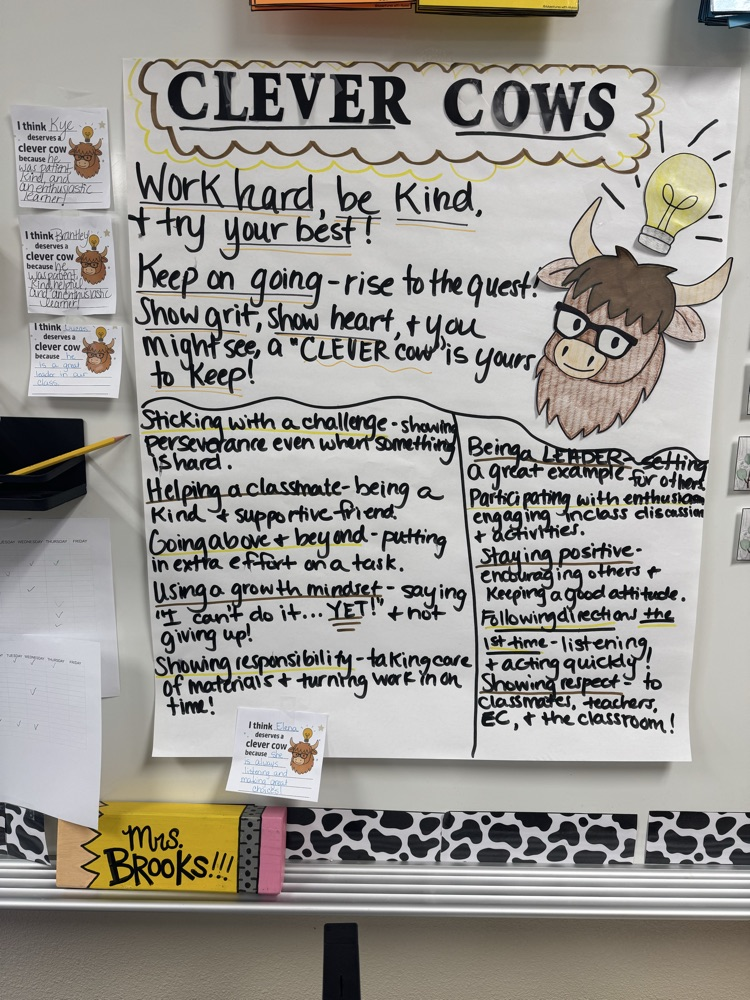 CLEVER COWS
Work hard, be Kind,
+ try your best!
Keep on going - rise to the quest!
Show grit, show heart, + you
might see, a "CLEVER cow" is yours
to keep!
Sticking with a challenge - showing
perseverance even when something
is hard.
Helping a classmate - being a
Kind + supportive friend.
Going above + beyond - putting
in extra effort on a task.
Using a growth mindset - saying
"I can't do it... YET!" + not
giving up!
Showing responsibility - taking care
of materials + turning work in on
time!
Being a LEADER - setting
a great example for others
Participating with enthusiasm
engaging in class discussion
+ activities.
Staying positive -
encouraging others +
Keeping a good attitude.
Following directions the
1st time - listening
+ acting quickly!
Showing respect - to
classmates, teachers,
EC, + the classroom!
I think Kye
deserves a
clever cow
because he
was patient,
Kind, and
an enthusiastic
learner!
I think Brantley
deserves a
clever cow
because he
was patient,
Kind, helpful
and an enthusiastic
learner!
I think Lucas
deserves a
clever cow
because he
is a great
leader in our
class
I think Elena
deserves a
clever cow
because she
is always
listening and
making great
choices!
TUESDAY WEDNESDAY THURSDAY FRIDAY
TUESDAY WEDNESDAY THURSDAY FRIDAY
Mrs.
BROOKS!!!